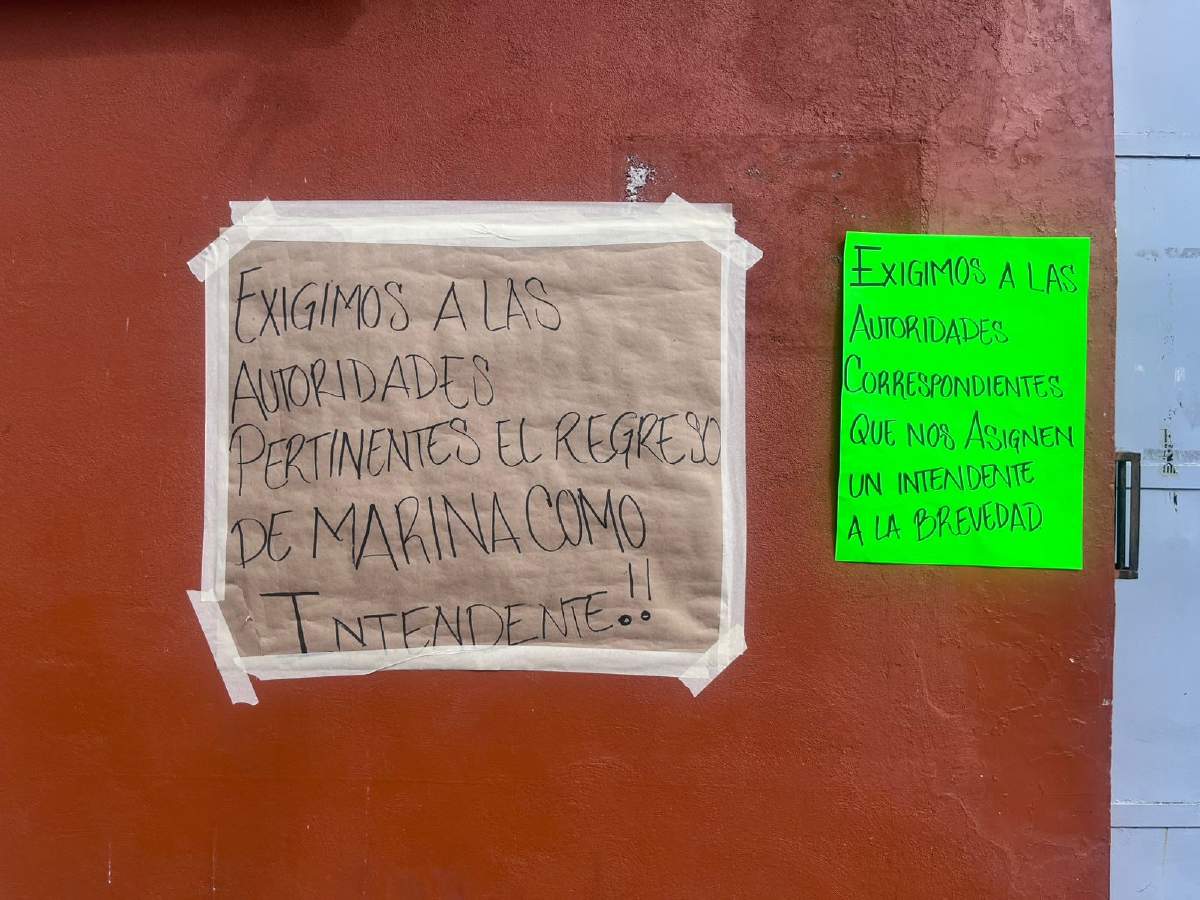 EXIGIMOS A LAS
AUTORIDADES
PERTINENTES EL REGRESO
DE MARINA COMO
INTENDENTE!!
EXIGIMOS A LAS
AUTORIDADES
CORRESPONDIENTES
QUE NOS ASIGNEN
UN INTENDENTE
A LA BREVEDAD